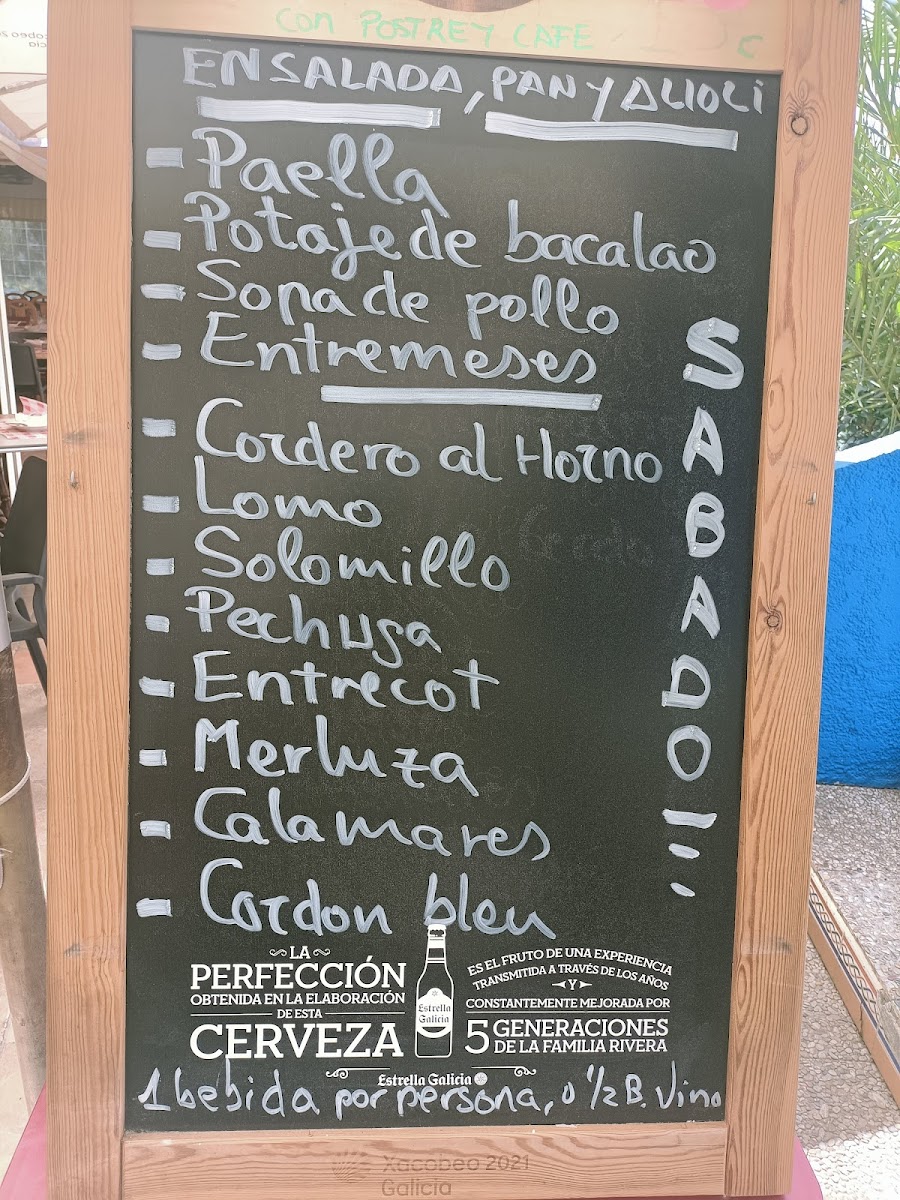 con POSTRE Y CAFE
C
ENSALADA, PAN Y ALIOLI
- Paella
- Potaje de bacalao
- Sopa de pollo
- Entremeses
- Cordero al Horno
- Lomo
- Solomillo
- Pechuga
- Entrecot
- Merluza
- Calamares
- Cordon bleu
SABADO
LA
PERFECCIÓN
OBTENIDA EN LA ELABORACIÓN
DE ESTA
CERVEZA
Estrella
Galicia
ES EL FRUTO DE UNA EXPERIENCIA
TRANSMITIDA A TRAVÉS DE LOS AÑOS
Y
CONSTANTEMENTE MEJORADA POR
5 GENERACIONES
DE LA FAMILIA RIVERA
Estrella Galicia
1 bebida por persona, o ½ B. Vino
Xacobeo 2021
Galicia